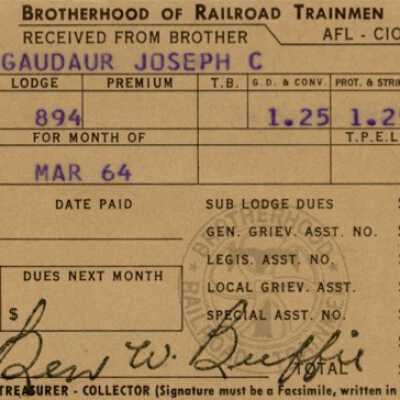 BROTHERHOOD OF RAILROAD TRAINMEN
RECEIVED FROM BROTHER AFL - CIO
GAUDAUR JOSEPH C
LODGE PREMIUM T.B. G.D. & CONV. PROT. & STRI
894 1.25 1.2
FOR MONTH OF T.P.E.L
MAR 64
DATE PAID SUB LODGE DUES
GEN. GRIEV. ASST. NO.
LEGIS. ASST. NO.
DUES NEXT MONTH LOCAL GRIEV. ASST.
$ SPECIAL ASST. NO.
Ben W. Buffie
TOTAL
TREASURER - COLLECTOR (Signature must be a Facsimile, written in